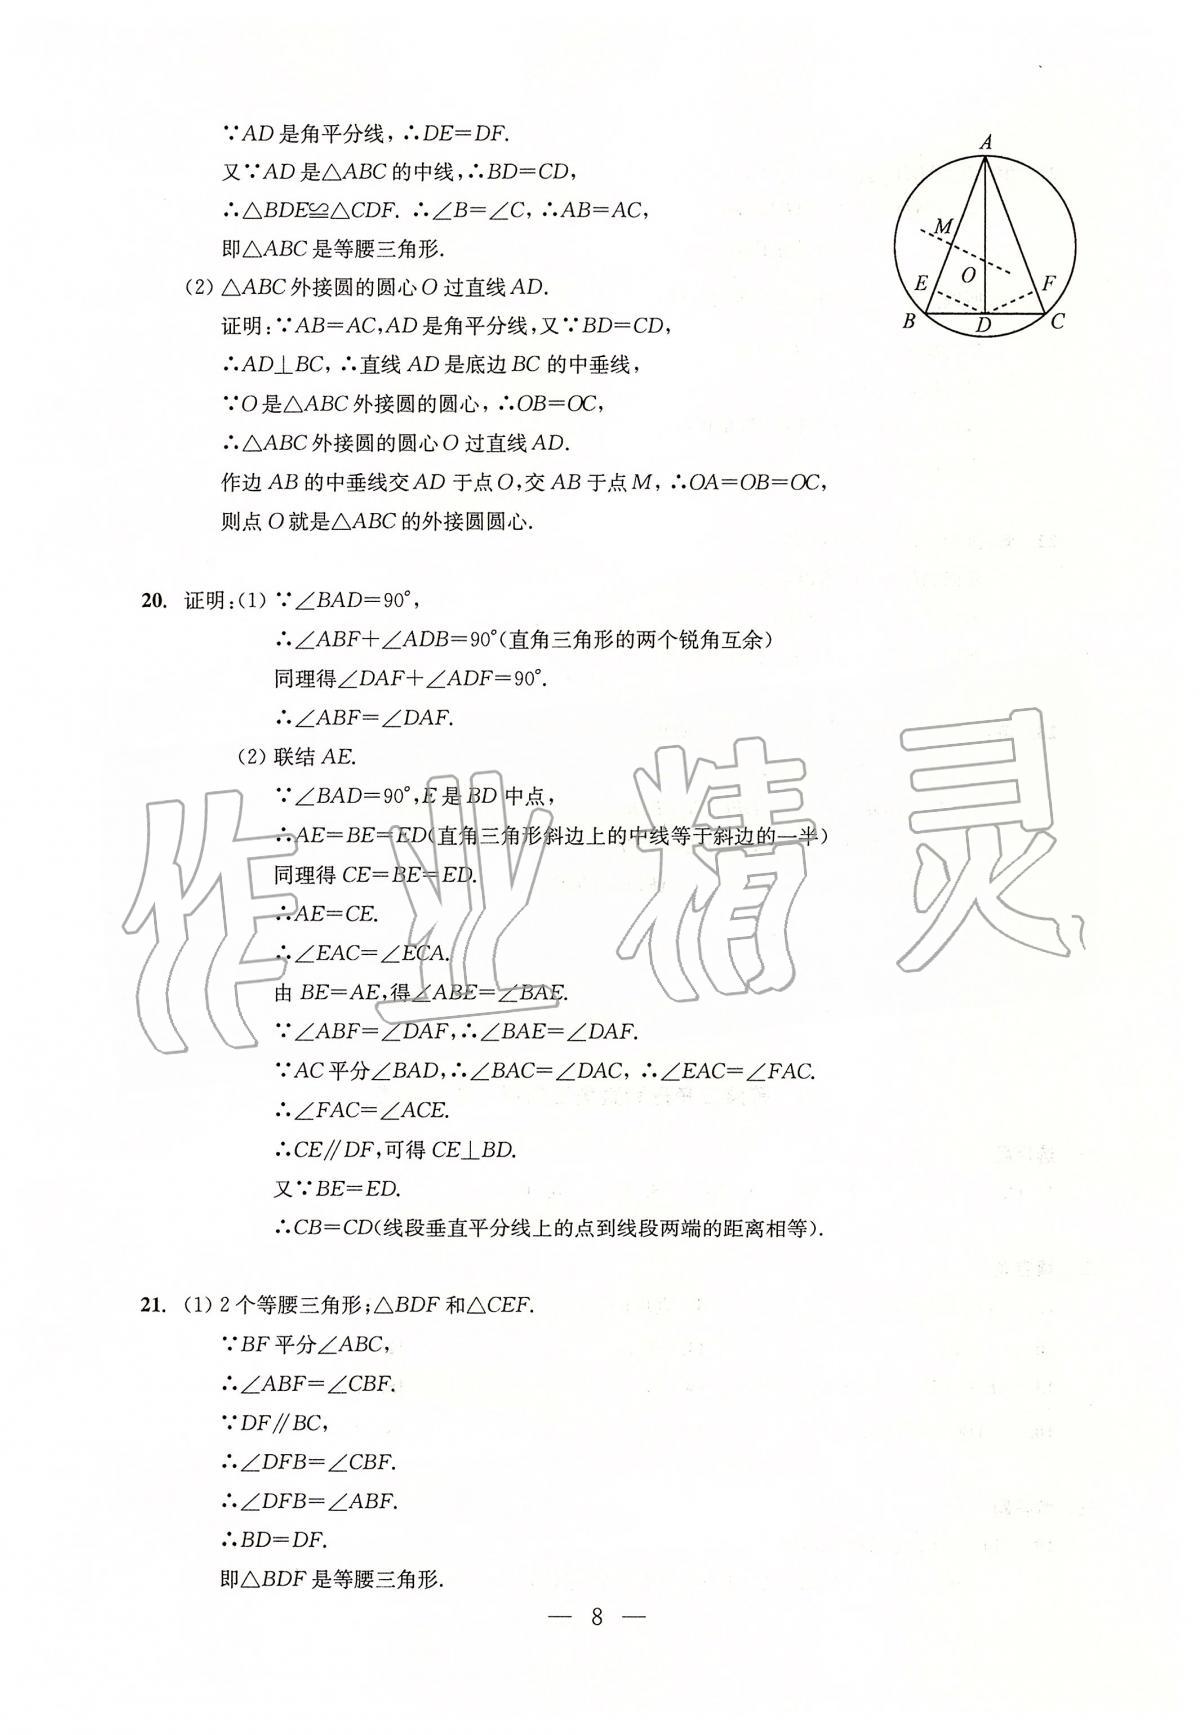 ∵AD是角平分线，∴DE=DF.
又∵AD是△ABC的中线,∴BD=CD,
∴△BDE≌△CDF. ∴∠B=∠C, ∴AB=AC,
即△ABC是等腰三角形.
(2) △ABC外接圆的圆心O过直线AD.
证明:∵AB=AC,AD是角平分线,又∵BD=CD,
∴AD⊥BC, ∴直线AD是底边BC的中垂线,
∵O是△ABC外接圆的圆心, ∴OB=OC,
∴△ABC外接圆的圆心O过直线AD.
作边AB的中垂线交AD于点O,交AB于点M, ∴OA=OB=OC,
则点O就是△ABC的外接圆圆心.
A
M
O
E
F
B
D
C
20. 证明:(1) ∵∠BAD=90°,
∴∠ABF+∠ADB=90°(直角三角形的两个锐角互余)
同理得∠DAF+∠ADF=90°.
∴∠ABF=∠DAF.
(2) 联结AE.
∵∠BAD=90°,E是BD中点,
∴AE=BE=ED(直角三角形斜边上的中线等于斜边的一半)
同理得CE=BE=ED.
∴AE=CE.
∴∠EAC=∠ECA.
由BE=AE,得∠ABE=∠BAE.
∵∠ABF=∠DAF,∴∠BAE=∠DAF.
∵AC平分∠BAD,∴∠BAC=∠DAC, ∴∠EAC=∠FAC.
∴∠FAC=∠ACE.
∴CE∥DF,可得CE⊥BD.
又∵BE=ED.
∴CB=CD(线段垂直平分线上的点到线段两端的距离相等).
21. (1) 2个等腰三角形;△BDF和△CEF.
∵BF平分∠ABC,
∴∠ABF=∠CBF.
∵DF∥BC,
∴∠DFB=∠CBF.
∴∠DFB=∠ABF.
∴BD=DF.
即△BDF是等腰三角形.
— 8 —
作业精灵